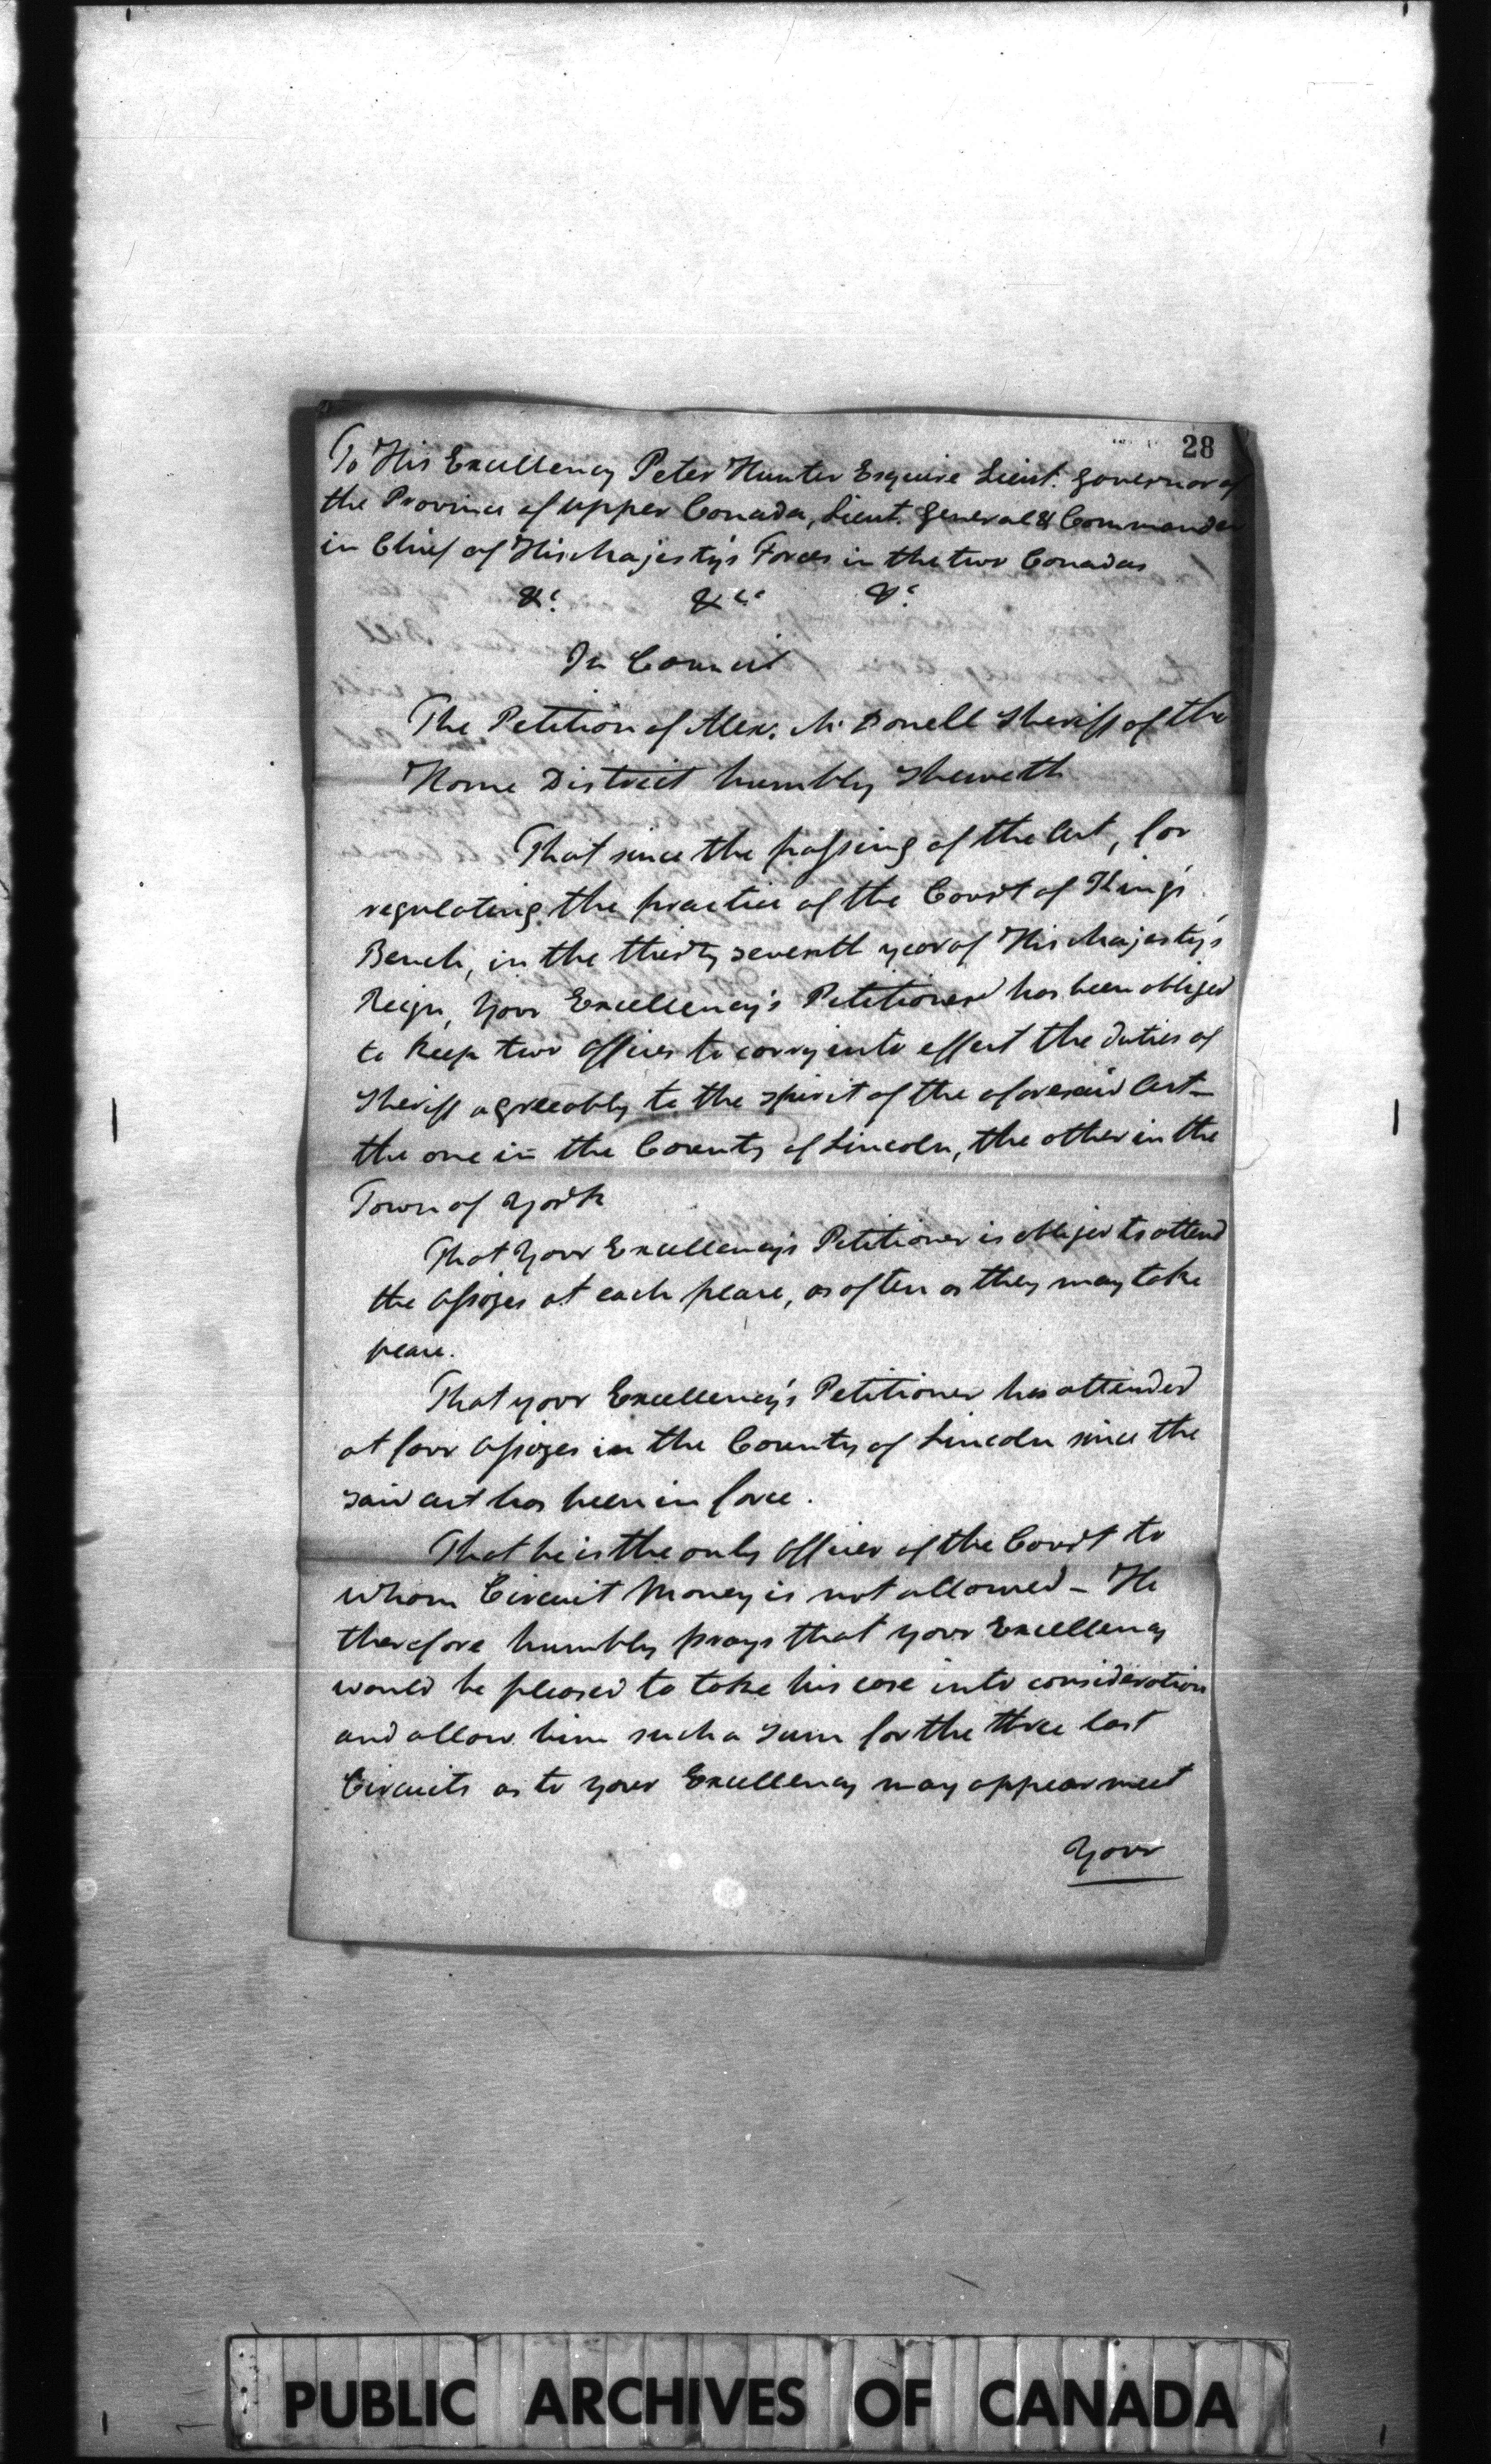 28
To His Excellency Peter Hunter Esquire Lieut. Governor of
the Province of Upper Canada, Lieut. General & Commander
in Chief of His Majesty's Forces in the two Canadas
&c. &c. &c.
In Council
The Petition of Alex. McDonell Sheriff of the
Home District humbly Sheweth
That since the passing of the Act, for
regulating the practice of the Court of King's
Bench, in the thirty seventh year of His Majesty's
Reign, Your Excellency's Petitioner has been obliged
to keep two offices to carry into effect the duties of
Sheriff agreeably to the spirit of the aforesaid Act -
the one in the County of Lincoln, the other in the
Town of York
That Your Excellency's Petitioner is obliged to attend
the Assizes at each place, as often as they may take
place.
That your Excellency's Petitioner has attended
at four Assizes in the County of Lincoln since the
said act has been in force.
That he is the only Officer of the Court to
whom Circuit Money is not allowed - He
therefore humbly prays that your Excellency
would be pleased to take his case into consideration
and allow him such a sum for the three last
Circuits as to your Excellency may appear meet
Your
PUBLIC ARCHIVES OF CANADA